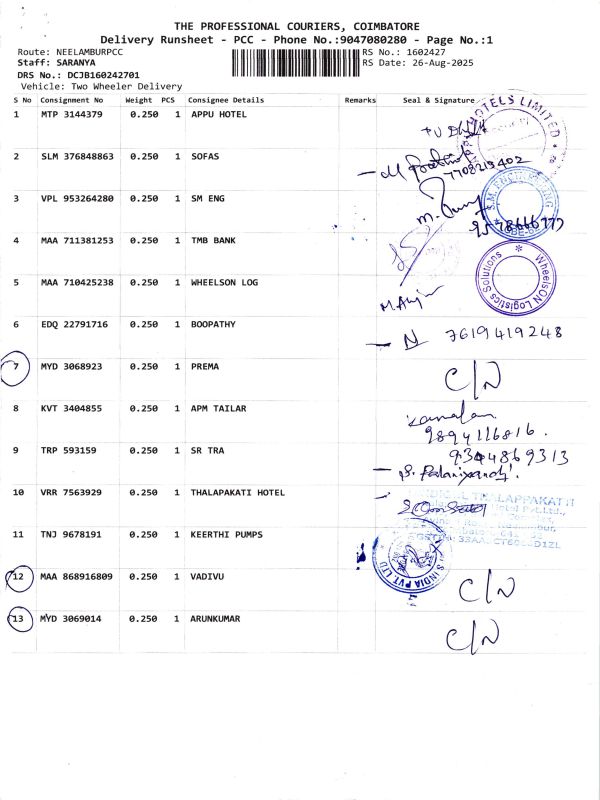 THE PROFESSIONAL COURIERS, COIMBATORE
Delivery Runsheet - PCC - Phone No.:9047080280 - Page No.:1
Route: NEELAMBURPCC RS No.: 1602427
Staff: SARANYA RS Date: 26-Aug-2025
DRS No.: DCJB160242701
Vehicle: Two Wheeler Delivery
S No Consignment No Weight PCS Consignee Details Remarks Seal & Signature
1 MTP 3144379 0.250 1 APPU HOTEL
HOTELS LIMITED
2 SLM 376848863 0.250 1 SOFAS
7708213402
3 VPL 953264280 0.250 1 SM ENG
S.M. ENGINEERING
4 MAA 711381253 0.250 1 TMB BANK
5 MAA 710425238 0.250 1 WHEELSON LOG
WheelsON Logistics Solutions
6 EDQ 22791716 0.250 1 BOOPATHY
N 7619419248
7 MYD 3068923 0.250 1 PREMA
C/N
8 KVT 3404855 0.250 1 APM TAILAR
9894116816.
9 TRP 593159 0.250 1 SR TRA
9344869313
10 VRR 7563929 0.250 1 THALAPAKATI HOTEL
THALAPPAKATTI
11 TNJ 9678191 0.250 1 KEERTHI PUMPS
INDIA PVT. LTD
12 MAA 868916809 0.250 1 VADIVU
C/N
13 MYD 3069014 0.250 1 ARUNKUMAR
C/N